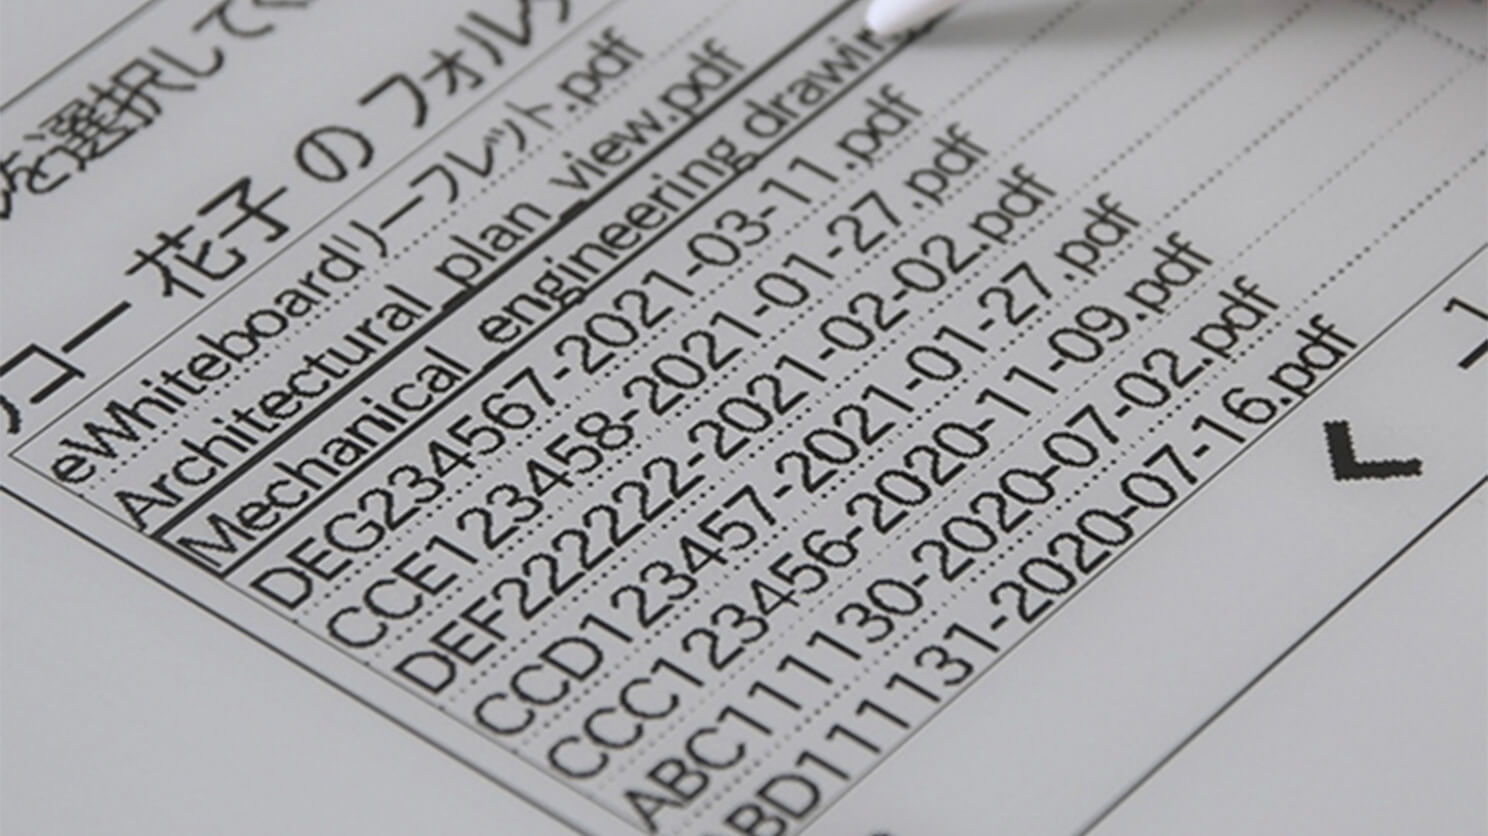 を選択して
リコー 花子 の フォル
eWhiteboardリーフレット.pdf
Architectural_plan_view.pdf
Mechanical_engineering_drawing
DEG234567-2021-03-11.pdf
CCE123458-2021-01-27.pdf
DEF22222-2021-02-02.pdf
CCD123457-2021-01-27.pdf
CCC123456-2020-11-09.pdf
ABC111130-2020-07-02.pdf
ABD111131-2020-07-16.pdf
1